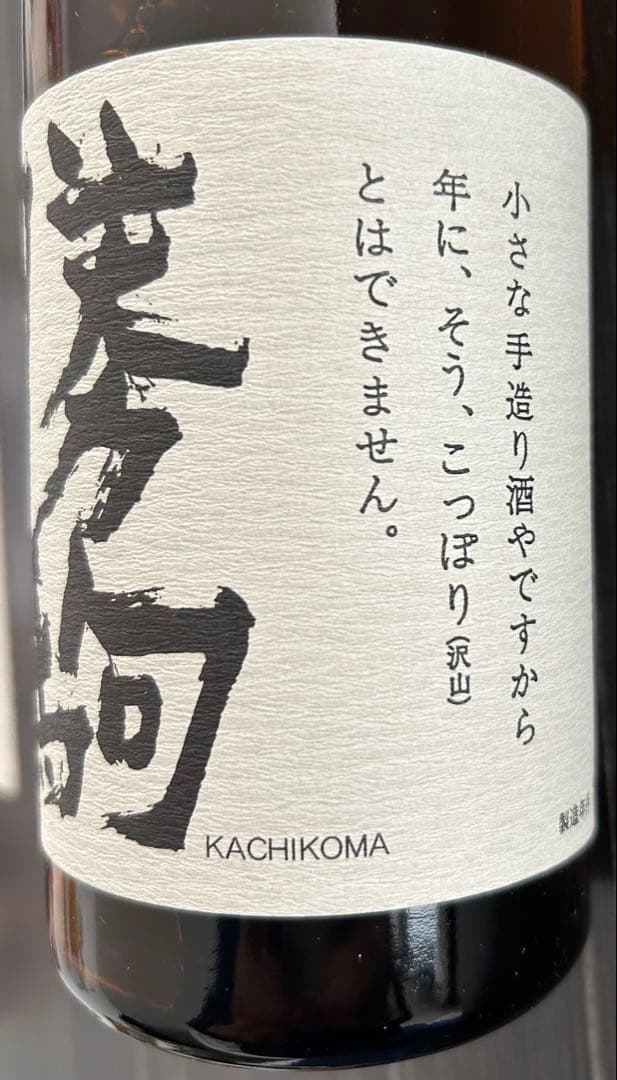 小さな手造り酒やですから
年に、そう、こつぽり(沢山)
とはできません。
勝駒
KACHIKOMA
製造年月